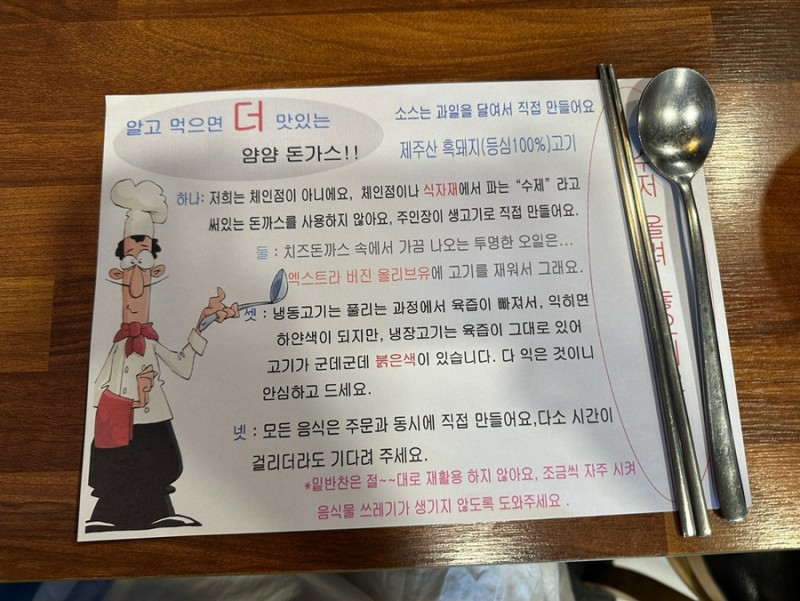 알고 먹으면 더 맛있는
얌얌 돈가스!!
소스는 과일을 달여서 직접 만들어요
제주산 흑돼지(등심100%)고기
하나: 저희는 체인점이 아니에요, 체인점이나 식자재에서 파는 “수제” 라고
써있는 돈까스를 사용하지 않아요, 주인장이 생고기로 직접 만들어요.
둘 : 치즈돈까스 속에서 가끔 나오는 투명한 오일은...
엑스트라 버진 올리브유에 고기를 재워서 그래요.
셋 : 냉동고기는 풀리는 과정에서 육즙이 빠져서, 익히면
하얀색이 되지만, 냉장고기는 육즙이 그대로 있어
고기가 군데군데 붉은색이 있습니다. 다 익은 것이니
안심하고 드세요.
넷 : 모든 음식은 주문과 동시에 직접 만들어요,다소 시간이
걸리더라도 기다려 주세요.
*밑반찬은 절~~대로 재활용 하지 않아요, 조금씩 자주 시켜
음식물 쓰레기가 생기지 않도록 도와주세요 .
올려